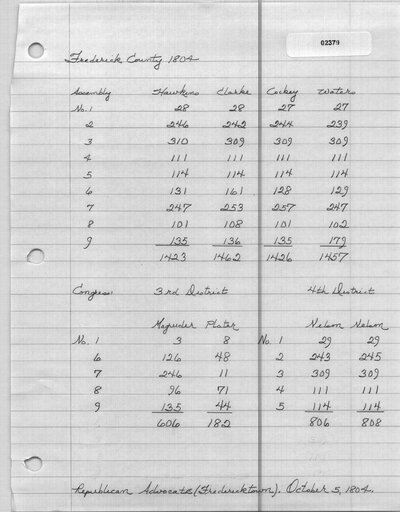 02379
Frederick County 1804
Assembly Hawkins Clarke Cockey Waters
No. 1 28 28 27 27
2 246 242 244 239
3 310 309 309 309
4 111 111 111 111
5 114 114 114 114
6 131 161 128 129
7 247 253 257 247
8 101 108 101 102
9 135 136 135 179
1423 1462 1426 1457
Congress: 3rd District 4th District
Magruder Plater Nelson Nelson
No. 1 3 8 No. 1 29 29
6 126 48 2 243 245
7 246 11 3 309 309
8 96 71 4 111 111
9 135 44 5 114 114
606 182 806 808
Republican Advocate (Fredericktown). October 5, 1804.